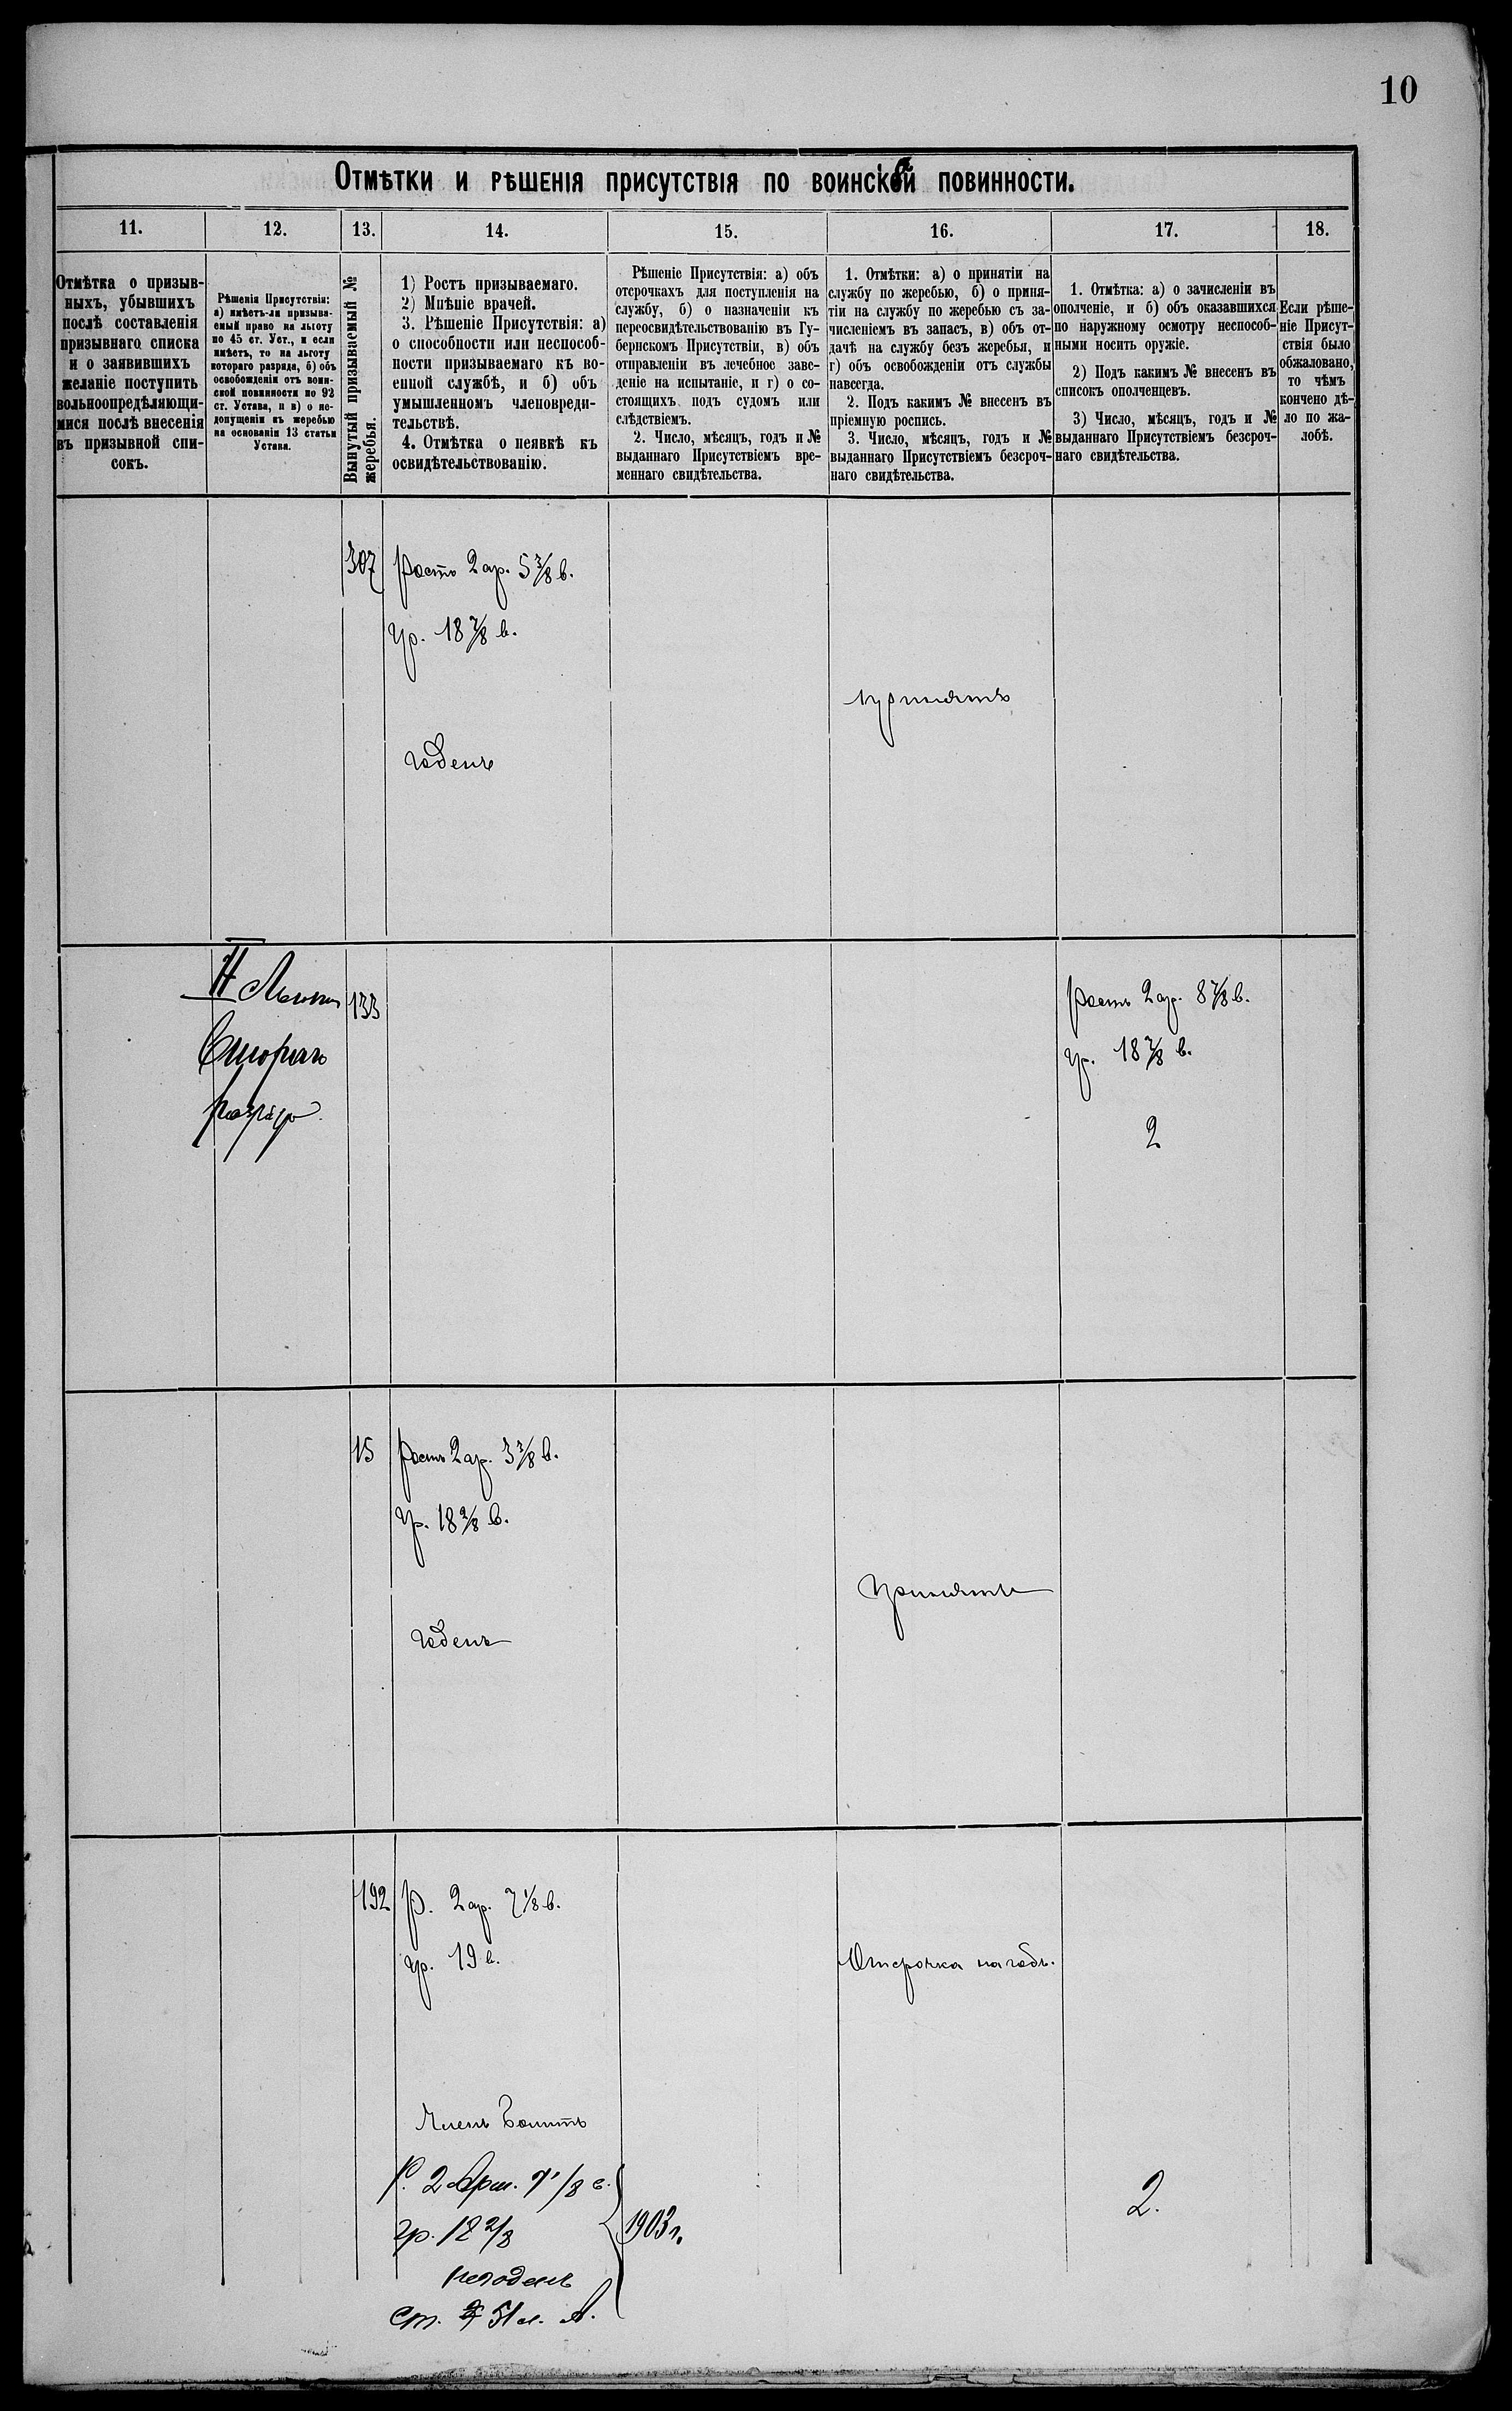 10
Отмѣтки и рѣшенія присутствія по воинской повинности.
11.
12.
13.
14.
15.
16.
17.
18.
Отмѣтка о призыв-
ныхъ, убывшихъ
послѣ составленія
призывнаго списка
и о заявившихъ
желаніе поступить
вольноопредѣляющи-
мися послѣ внесенія
въ призывной спи-
сокъ.
Рѣшенія Присутствія:
а) имѣетъ-ли призыва-
емый право на льготу
по 45 ст. Уст., и если
имѣетъ, то на льготу
котораго разряда, б) объ
освобожденіи отъ воин-
ской повинности по 92
ст. Устава, и в) о не-
допущеніи къ жеребью
на основаніи 13 статьи
Устава.
Вынутый призываемый №
жеребья.
1) Ростъ призываемаго.
2) Мнѣніе врачей.
3. Рѣшеніе Присутствія: а)
о способности или неспособ-
ности призываемаго къ во-
енной службѣ, и б) объ
умышленномъ членовреди-
тельствѣ.
4. Отмѣтка о неявкѣ къ
освидѣтельствованію.
Рѣшеніе Присутствія: а) объ
отсрочкахъ для поступленія на
службу, б) о назначеніи къ
переосвидѣтельствованію въ Гу-
бернскомъ Присутствіи, в) объ
отправленіи въ лечебное заве-
деніе на испытаніе, и г) о со-
стоящихъ подъ судомъ или
слѣдствіемъ.
2. Число, мѣсяцъ, годъ и №
выданнаго Присутствіемъ вре-
меннаго свидѣтельства.
1. Отмѣтки: а) о принятіи на
службу по жеребью, б) о приня-
тіи на службу по жеребью съ за-
численіемъ въ запасъ, в) объ от-
дачѣ на службу безъ жеребья, и
г) объ освобожденіи отъ службы
навсегда.
2. Подъ какимъ № внесенъ въ
пріемную роспись.
3. Число, мѣсяцъ, годъ и №
выданнаго Присутствіемъ безсроч-
наго свидѣтельства.
1. Отмѣтка: а) о зачисленіи въ
ополченіе, и б) объ оказавшихся
по наружному осмотру неспособ-
ными носить оружіе.
2) Подъ какимъ № внесенъ въ
списокъ ополченцевъ.
3) Число, мѣсяцъ, годъ и №
выданнаго Присутствіемъ безсроч-
наго свидѣтельства.
Если рѣше-
ніе Присут-
ствія было
обжаловано,
то чѣмъ
кончено дѣ-
ло по жа-
лобѣ.
307
ростъ 2 ар. 5 3/8 в.
гр. 18 7/8 в.
принятъ
годенъ
II
133
разряда
ростъ 2 ар. 8 7/8 в.
гр. 18 7/8 в.
2
15
ростъ 2 ар. 3 3/8 в.
гр. 18 2/8 в.
принятъ
годенъ
192
р. 2 ар. 7 1/8 в.
гр. 19 в.
Отсрочка на годъ.
Р. 2 Арш. 7 1/8 в.
гр. 18 2/8
1903 г.
2.
негоденъ
ст.